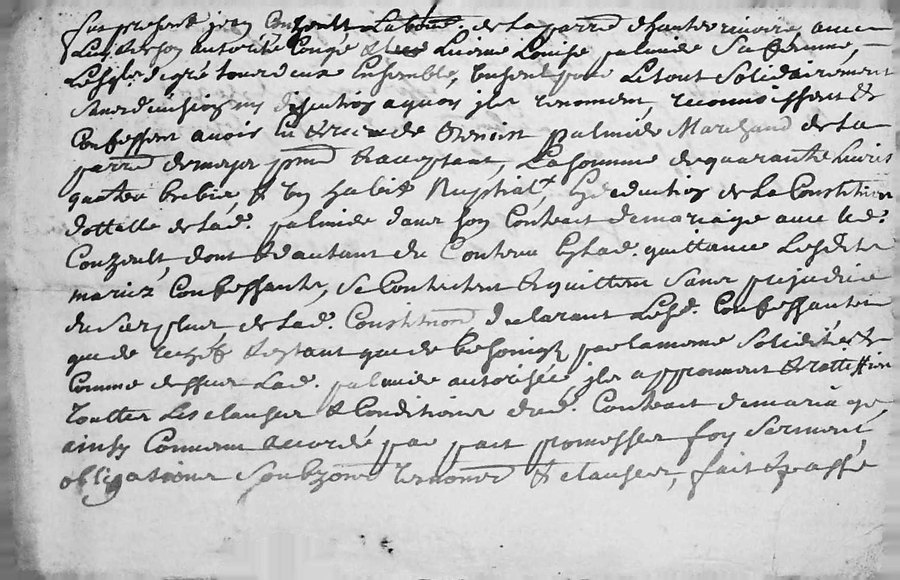 fut present jean Couzoult Laboureur de la parre d'hauterivoire, avec
Luy de son autorité Congé & Lucrme Louise palmide Sa femme,
Lesquls degré tour deux Ensemble, Un seul pour Le tout Solidairement
Sans division ny discution a quoy jls renoncent, reconnoissent &
Confessent avoir eu & receu de Benoist palmide Marchand de La
parre de meys pnt & acceptant, La Somme de quarante Livres
quatre brebis, & Un habit Nuptial, En deduction de La Constitution
dottalle de Lad. palmide dans Son Contract de mariage avec led.
Couzoult, dont & autant du Contenu En lad. quittance Lesdits
mariez Confessants, Se Contentent & quittent Sans prejudice
du Surplus de Lad. Constitution, declarant Lesd. Confessants
que de & tant que de besoing par la meme Solidité &
Comme dessus Lad. palmide autorisée, jls approuvent & rattiffient
Touttes Les clauses & Conditions dud. Contract de mariage
ainsy Convenu accordé par pact promesses foy Serment,
obligations Soubzons renons & clauses, fait & passé